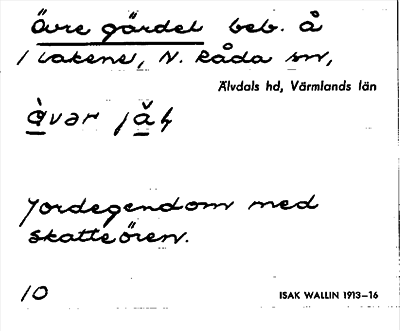 Övre gärdet beb. å
Lakene, N. Råda sn,
Älvdals hd, Värmlands län
Jordegendom med
skatteören.
10
ISAK WALLIN 1913–16